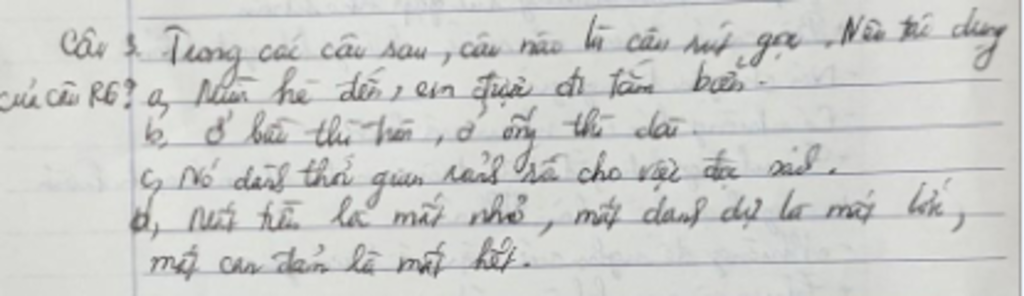 Câu 3. Trong các câu sau, câu nào là câu rút gọn. Nêu tác dụng
của câu RG? a, Mùa hè đến, em được đi tắm biển.
b, Ở bầu thì tròn, ở ống thì dài.
c, Nó dành thời gian rảnh rỗi cho việc đọc sách.
d, Mất tiền là mất nhỏ, mất danh dự là mất lớn,
mất can đảm là mất hết.